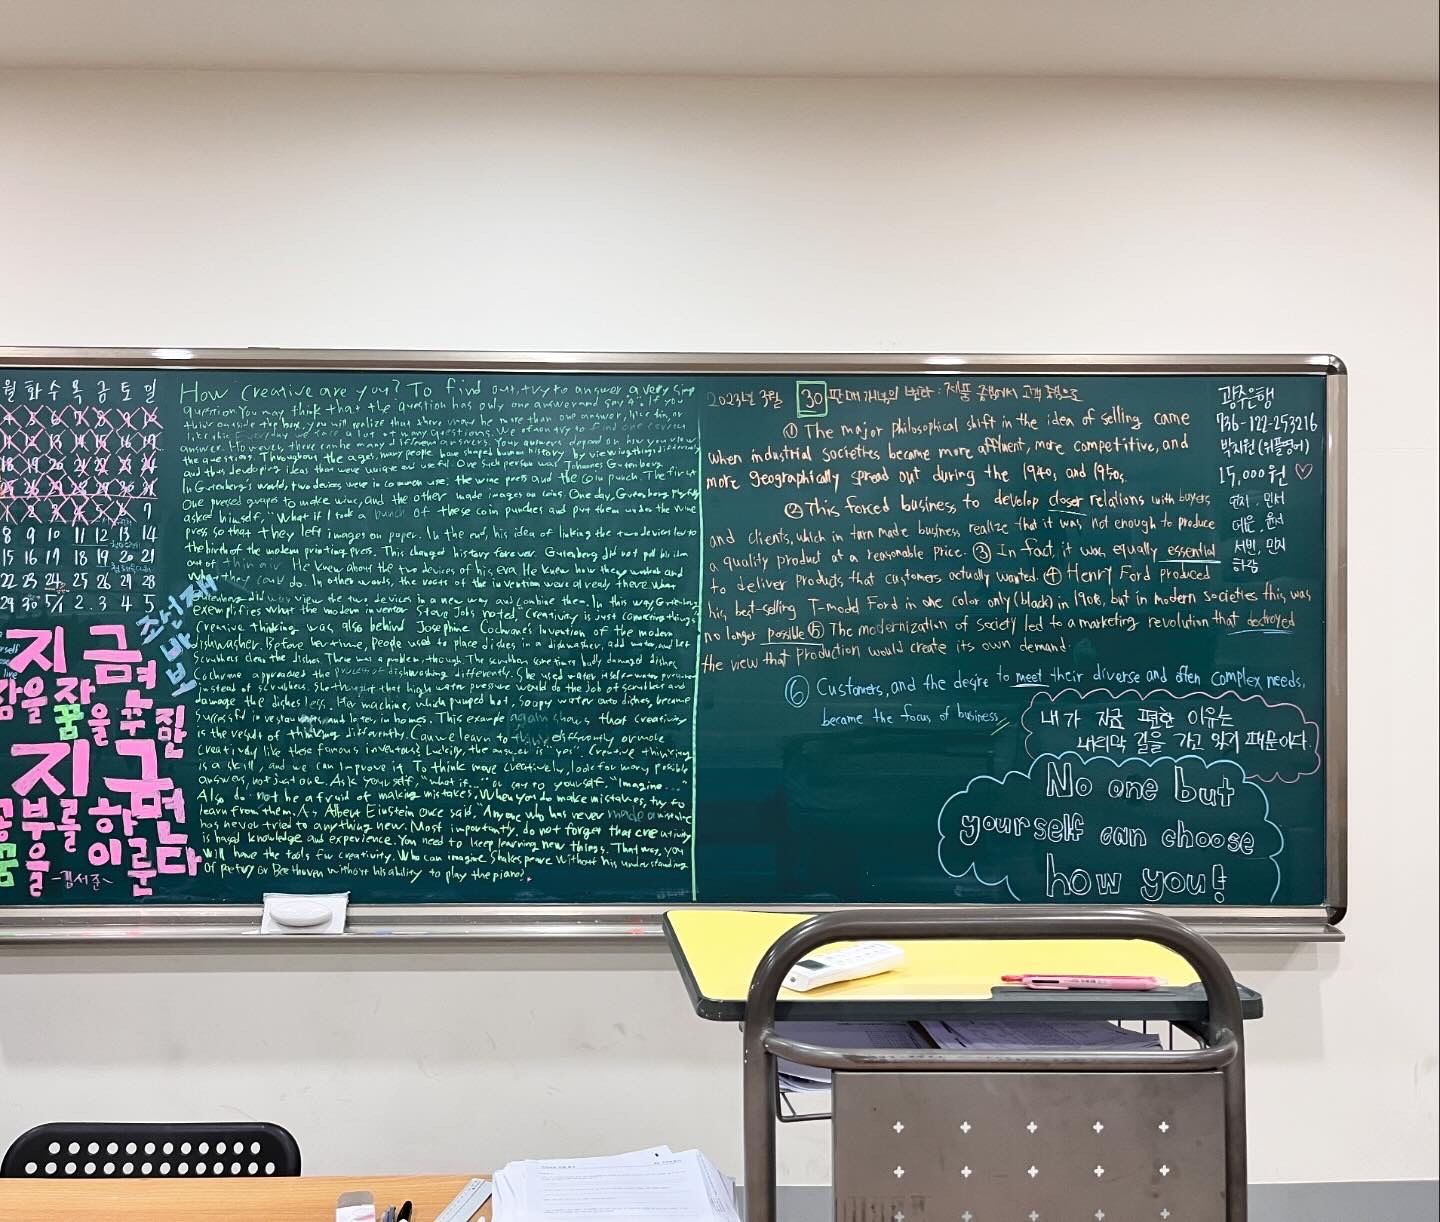 월 화 수 목 금 토 일
8 9 10 11 12 13 14
15 16 17 18 19 20 21
22 23 24 25 26 27 28
29 30 5/1 2. 3 4 5
조선재
바보
지금
잠을 자면
꿈을 꾸지만
지금
공부를 하면
꿈을 이룬다
-김서준-
How creative are you? To find out, try to answer a very simp
question. You may think that the question has only one answer and say 4. If you
think outside the box, you will realize that there may be more than one answer, like
like this. Everyday we face a lot of many questions. We often try to find one correct
answer. However, there can be many different answers. Your answers depend on how you view
the questions. Throughout the ages, many people have shaped human history by viewing things differently
and thus developing ideas that were unique and useful. One such person was Johannes Gutenberg.
In Gutenberg's world, two devices were in common use: the wine press and the coin punch. The first
One pressed grapes to make wine, and the other made images on coins. One day, Gutenberg playfully
asked himself, "What if I took a bunch of these coin punches and put them under the wine
press so that they left images on paper. In the end, his idea of linking the two devices led to
the birth of the modern printing press. This changed history forever. Gutenberg did not pull his idea
out of thin air. He knew about the two devices of his era. He knew how they worked and
what they could do. In other words, the roots of the invention were already there. What
Gutenberg did was view the two devices in a new way and combine them. In this way Gutenberg
exemplifies what the modern inventor Steve Jobs noted, "Creativity is just connecting things."
Creative thinking was also behind Josephine Cochrane's invention of the modern
dishwasher. Before her time, people used to place dishes in a dishwasher, add water, and let
scrubbers clean the dishes. There was a problem, though. The scrubbers sometimes badly damaged dishes.
Cochrane approached the process of dishwashing differently. She used water itself water pressure
instead of scrubbers. She thought that high water pressure would do the job of scrubbers and
damage the dishes less. Her machine, which pumped hot, soapy water onto dishes, became
successful in restaurants and later, in homes. This example again shows that creativity
is the result of thinking differently. Can we learn to think differently or more
creatively like these famous inventors? Luckily, the answer is "yes". Creative thinking
is a skill, and we can improve it. To think more creatively, look for many possible
answers, not just one. Ask yourself, "What if..." or say to yourself, "Imagine..."
Also do not be afraid of making mistakes. When you do make mistakes, try to
learn from them. As Albert Einstein once said, "Anyone who has never made a mistake
has never tried to anything new. Most importantly, do not forget that creativity
is based knowledge and experience. You need to keep learning new things. That way, you
will have the tools for creativity. Who can imagine Shakespeare without his understanding
of poetry or Beethoven without his ability to play the piano?
2023년 3월 30 판매개념의 변화 : 제품 중심에서 고객 중심으로
① The major philosophical shift in the idea of selling came
when industrial societies became more affluent, more competitive, and
more geographically spread out during the 1940s and 1950s.
② This forced business to develop closer relations with buyers
and clients, which in turn made business realize that it was not enough to produce
a quality product at a reasonable price. ③ In fact, it was equally essential
to deliver products that customers actually wanted. ④ Henry Ford produced
his best-selling T-model Ford in one color only (black) in 1908, but in modern societies this was
no longer possible. ⑤ The modernization of society led to a marketing revolution that destroyed
the view that production would create its own demand.
⑥ Customers, and the desire to meet their diverse and often complex needs,
became the focus of business
광주은행
736-122-253216
박지원 (위플영어)
15,000원 ♡
내가 지금 편한 이유는
내리막 길을 가고 있기 때문이다.
No one but
yourself can choose
how you!